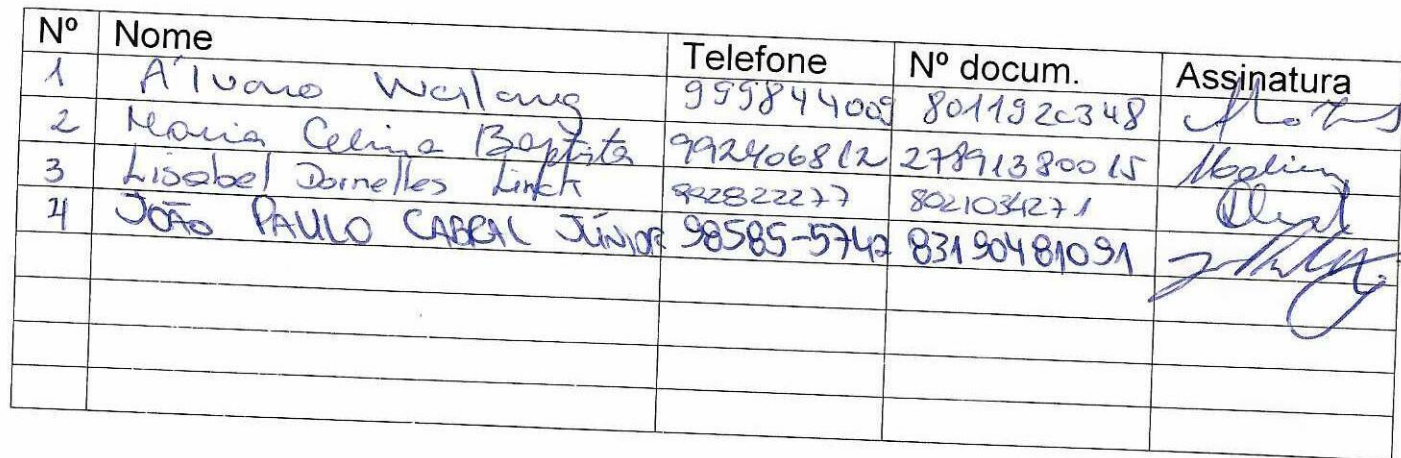 Nº Nome Telefone Nº docum. Assinatura
1 Álvaro Werlang 999844009 8011920348
2 Maria Celina Baptista 992406812 27891380015
3 Lisabel Dornelles Linck 992822277 8021034271
4 JOÃO PAULO CABRAL JÚNIOR 98585-5742 83190481091